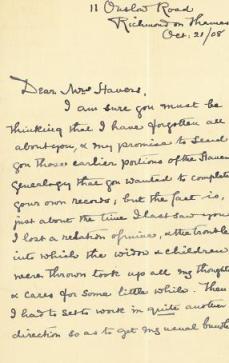 11 Onslow Road
Richmond on Thames
Oct: 21/08
Dear Mrs Stavers,
I am sure you must be
thinking that I have forgotten all
about you, & my promise to send
you those earlier portions of the Stavers
genealogy that you wanted to complete
your own records; but the fact is,
just about the time I last saw you
I lost a relation of mine, & the trouble
into which the widow & children
were thrown took up all my thoughts
& cares for some little while. Then
I had to set to work in quite another
direction so as to get my usual